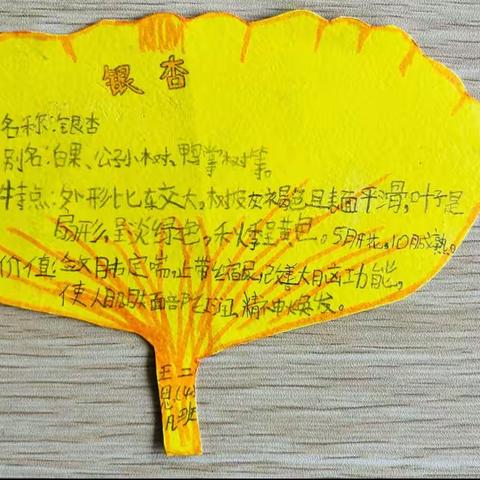 银杏
名称:银杏
别名:白果、公孙树、鸭掌树等。
特点:外形比较大,树皮灰褐色且表面平滑,叶子是
扇形,呈淡绿色,秋季呈黄色。5月开花,10月成熟。
价值:食用有定喘,止带缩尿,
使人肌肤面部红润,精神焕发。
王思凡
二(4)班